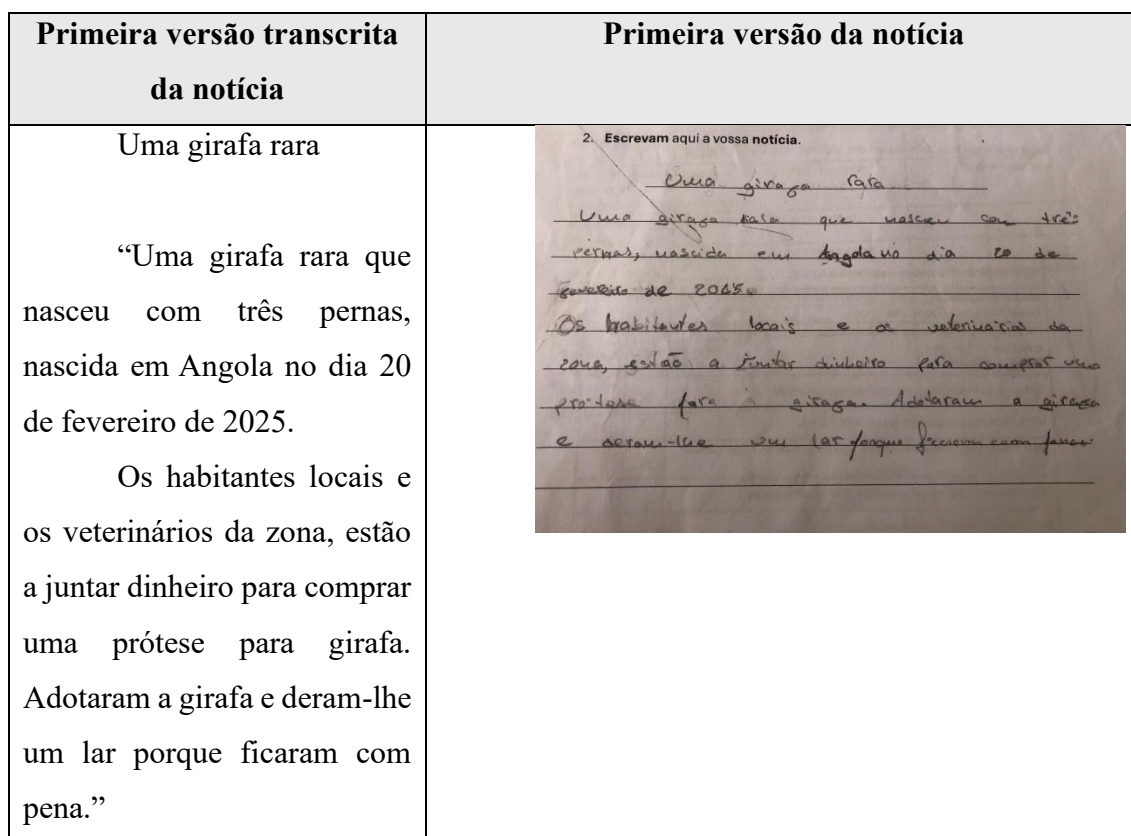 Primeira versão transcrita
da notícia
Primeira versão da notícia
Uma girafa rara
“Uma girafa rara que
nasceu com três pernas,
nascida em Angola no dia 20
de fevereiro de 2025.
Os habitantes locais e
os veterinários da zona, estão
a juntar dinheiro para comprar
uma prótese para girafa.
Adotaram a girafa e deram-lhe
um lar porque ficaram com
pena.”
2. Escrevam aqui a vossa notícia.
Uma girafa rara
Uma girafa rara que nasceu com três
pernas, nascida em Angola no dia 20 de
fevereiro de 2025.
Os habitantes locais e os veterinários da
zona, estão a juntar dinheiro para comprar uma
prótese para a girafa. Adotaram a girafa
e deram-lhe um lar porque ficaram com pena